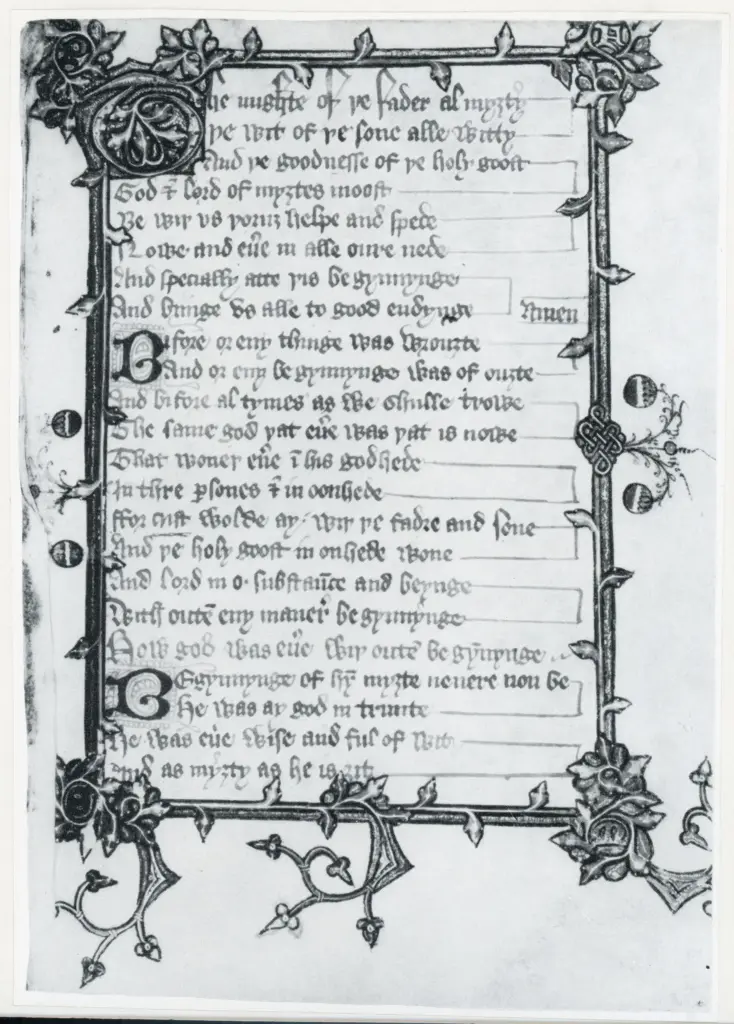 The mighte of þe fader al myȝty
þe wit of þe sone alle witty
And þe goodnesse of þe holy goost
God ⁊ lord of myȝtes moost
Be wiþ vs in oure helpe and spede
Nowe and eu̾e in alle oure nede
And specially atte þis begynnynge
And bringe vs alle to good endynge Amen
Bifore or eny thinge was wrouȝte
And or eny begynnynge was of ouȝte
And bifore al tymes as we shulle trowe
The same god þat eu̾e was þat is nowe
That woneþ eu̾e ī his godhede
In thre ꝑsones ⁊ in oonhede
ffor crist wolde ay wiþ þe fadre and sone
And þe holy goost in onhede wone
And lord in o substaūce and beynge
With outē eny maner̾ begynnynge
How god was eu̾e wiþ outē begȳnynge
Begynnynge of hȳ myȝte neuere non be
He was ay god in trinite
He was eu̾e wise and ful of wit
And as myȝty as he is ȝit